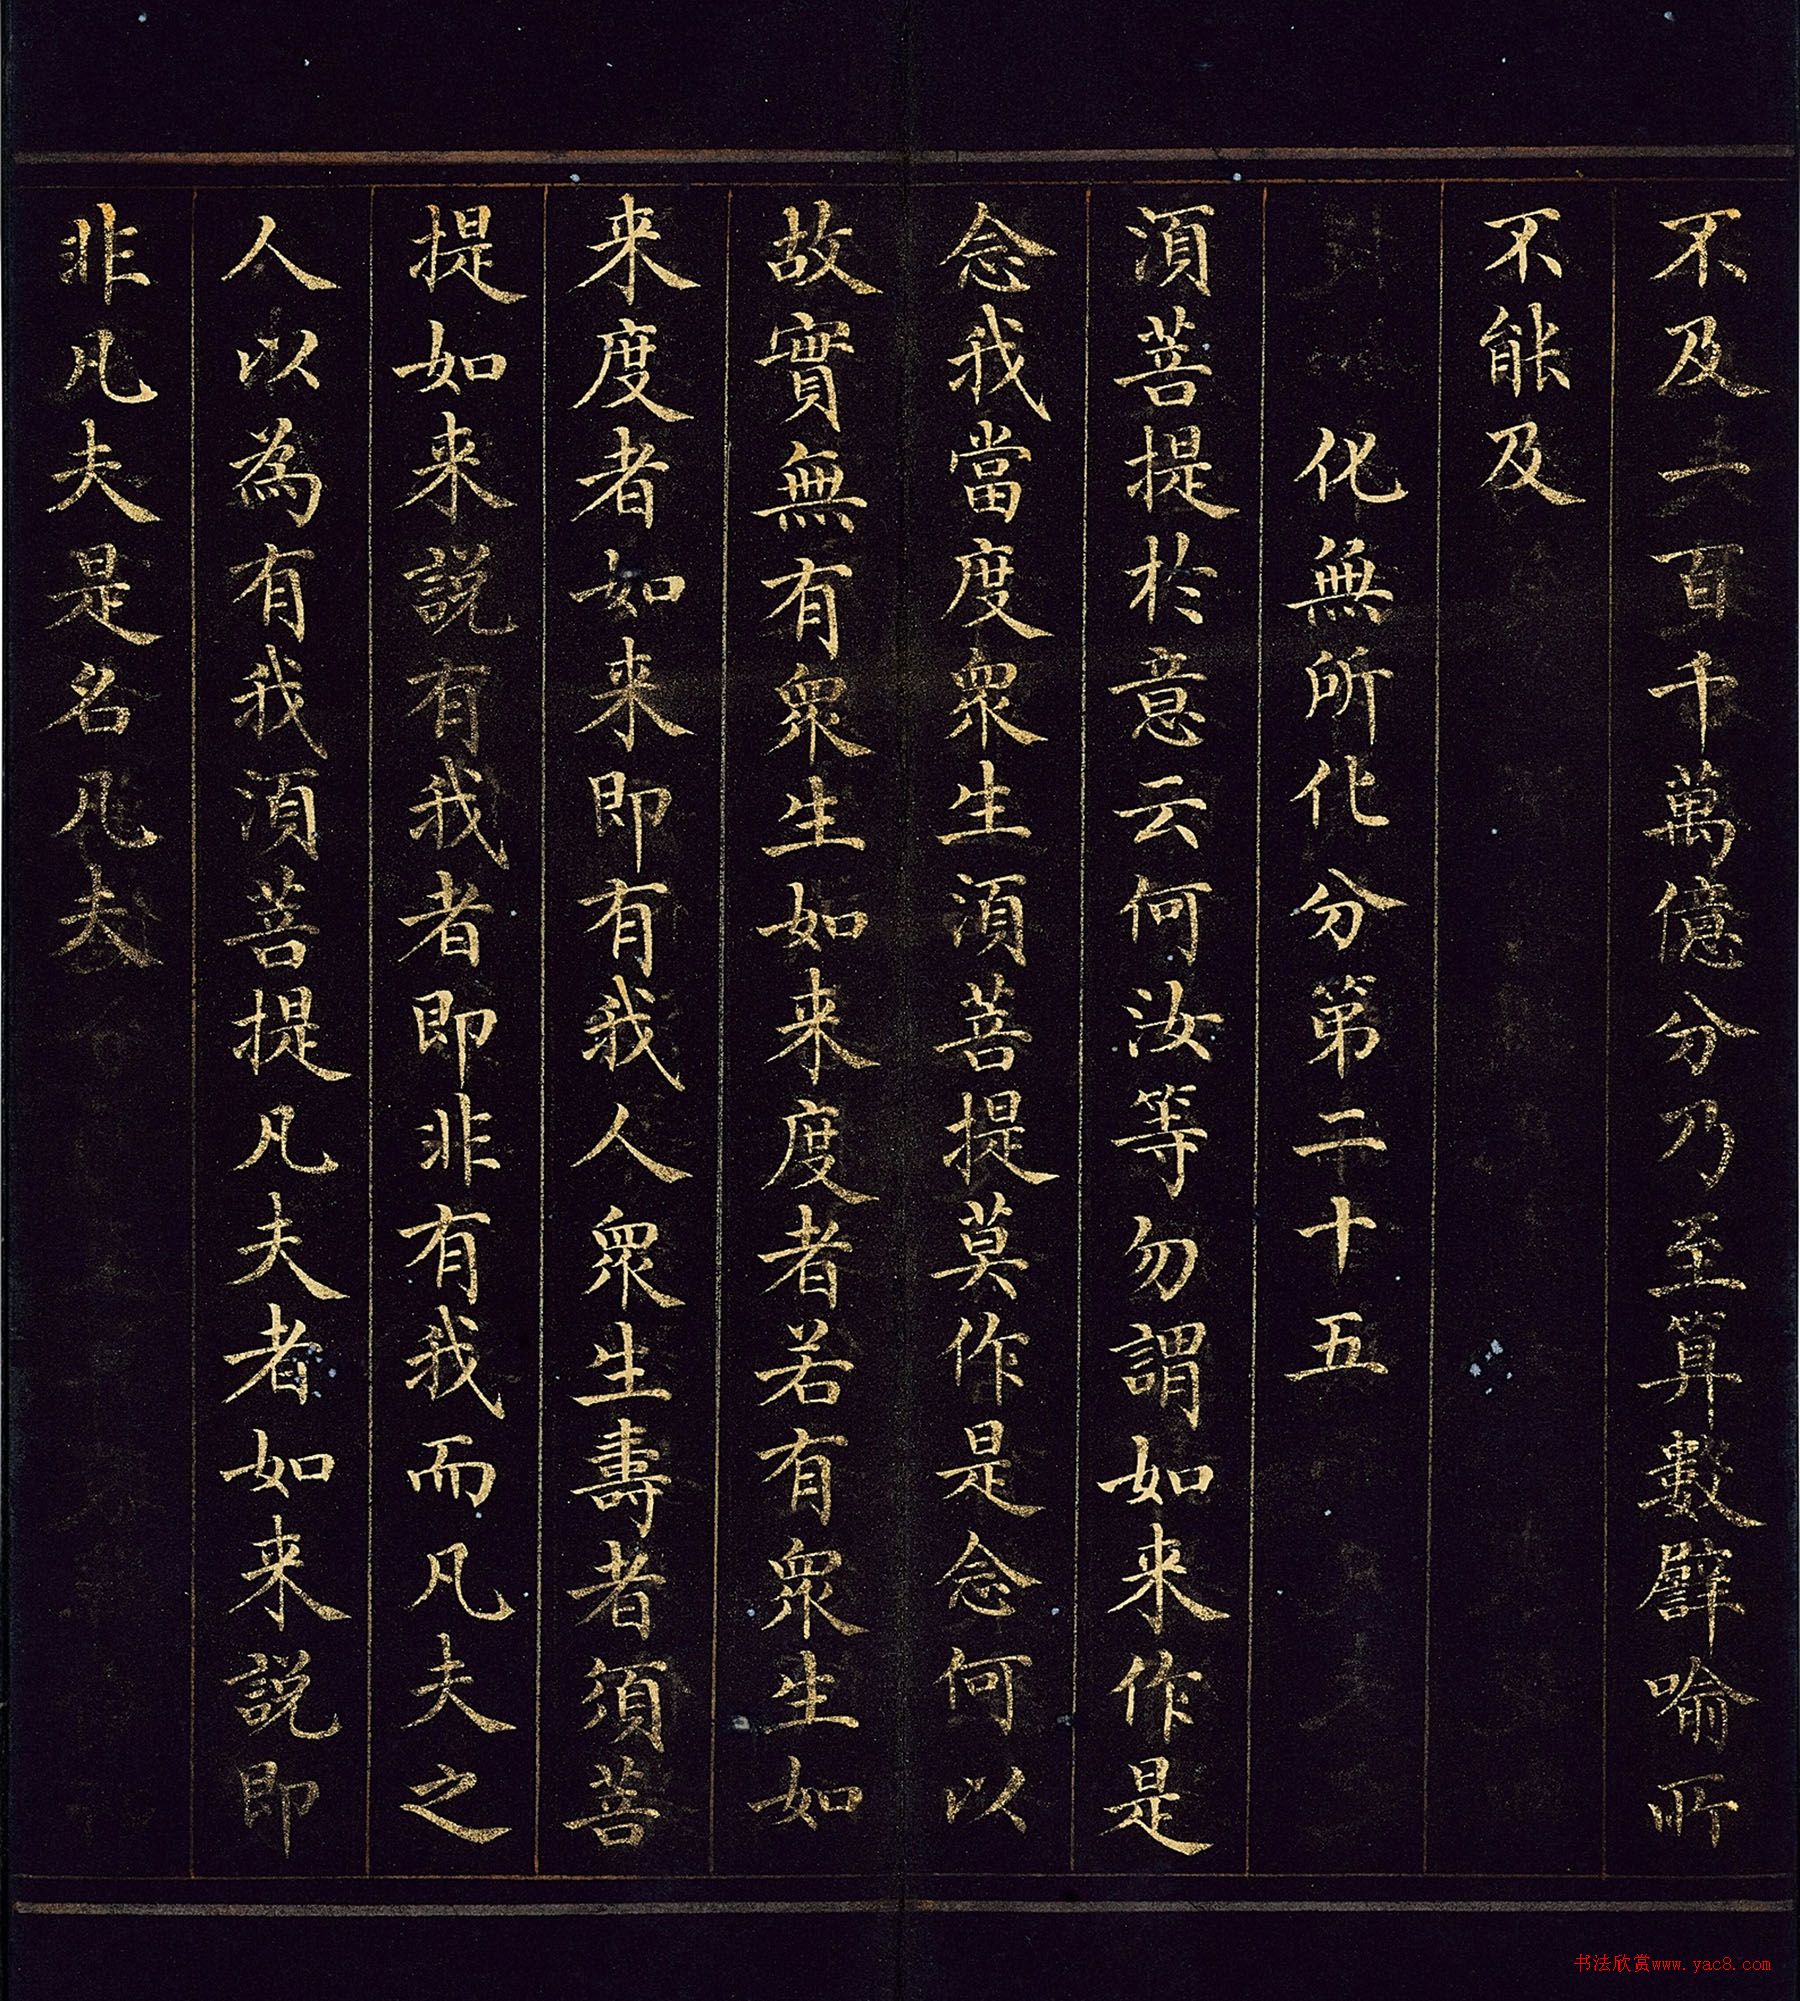 不及一百千萬億分乃至算數譬喻所
不能及
化無所化分第二十五
湏菩提於意云何汝等勿謂如来作是
念我當度衆生湏菩提莫作是念何以
故實無有衆生如来度者若有衆生如
来度者如来即有我人衆生壽者須菩
提如来説有我者即非有我而凡夫之
人以為有我湏菩提凡夫者如来説即
非凡夫是名凡夫
书法欣赏www.yac8.com